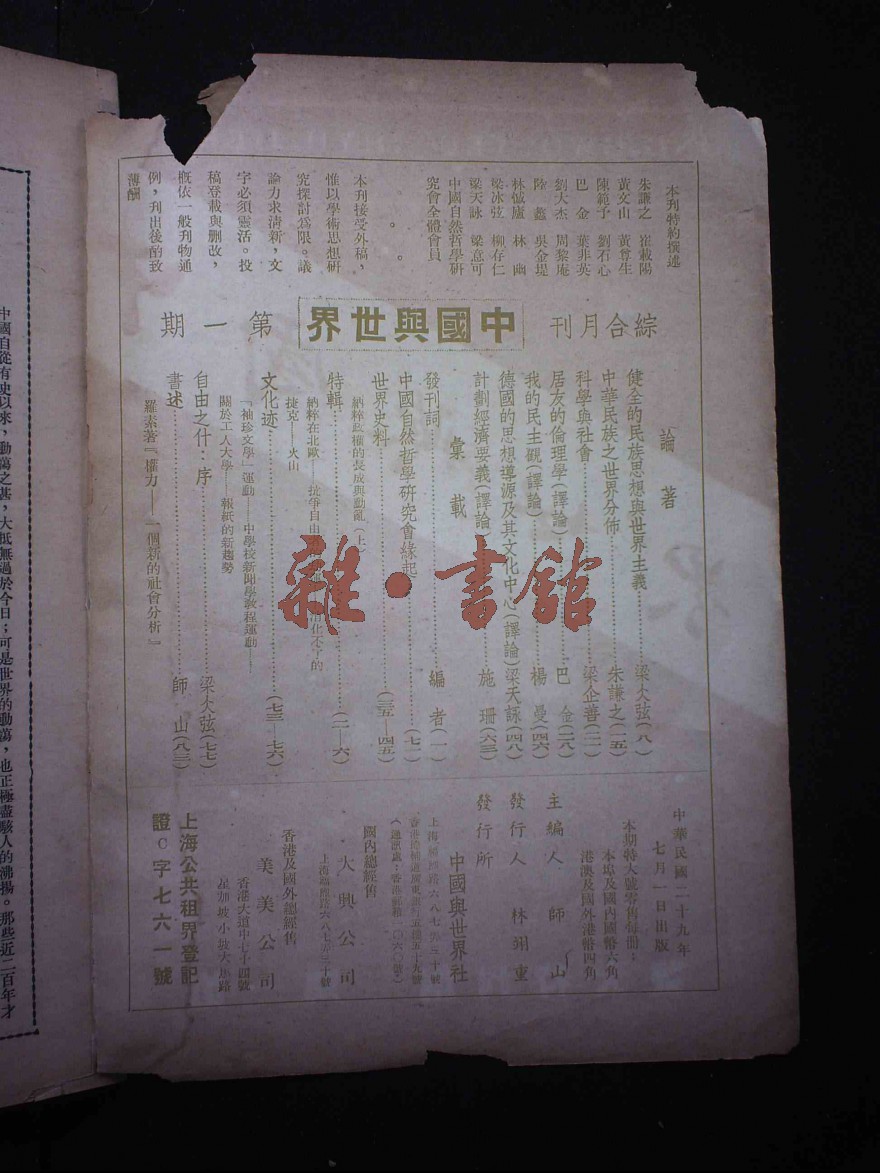 本刊特約撰述
朱謙之　崔載陽
黃文山　黃尊生
陳範予　劉石心
巴　金　葉非英
劉大杰　周黎庵
陸　蠡　吳金堤
林憾廬　林　幽
梁冰弦　柳存仁
梁天詠　梁意可
中國自然哲學研
究會全體會員
本刊接受外稿，
惟以學術思想研
究探討爲限。議
論力求清新，文
字必須靈活。投
稿登載與刪改，
概依一般刊物通
例，刊出後酌致
薄酬
綜合月刊　中國與世界　第一期
論著
健全的民族思想與世界主義……梁大弦(八)
中華民族之世界分佈……朱謙之(一五)
科學與社會……梁企善(二一)
居友的倫理學(譯論)……巴　金(二八)
我的民主觀(譯論)……楊　曼(四六)
德國的思想導源及其文化中心(譯論)梁天詠(四八)
計劃經濟要義(譯論……施　珊(六三)
彙載
發刊詞……編　者(一)
中國自然哲學研究會緣起……(七一)
世界史料……(三五—四五)
納粹政權的長成與動亂(上)
特輯……(二—六)
納粹在北歐——抗爭自由
消化不了的
捷克——火山
文化迹……(七三—七六)
「袖珍文學」運動——中學校新聞學敎程運動——
關於工人大學——報紙的新趨勢
自由之什：序……梁大弦(七七)
書述……師　山(八三)
羅素著『權力——一個新的社會分析』
中華民國二十九年
七月一日出版
本期特大號零售每冊：
本埠及國內國幣六角
港澳及國外港幣四角
主編人　師　山
發行人　林朔重
發行所　中國與世界社
國內總經售
大興公司
香港及國外總經售
美美公司
香港大道中七十四號
星加坡小坡大馬路
上海公共租界登記
證C字七六一號
雜·書館
中國自從有史以來，動蕩之甚，大抵無過於今日；可是世界的動蕩，也正極盡駭人的沸揚。那些近二百年才